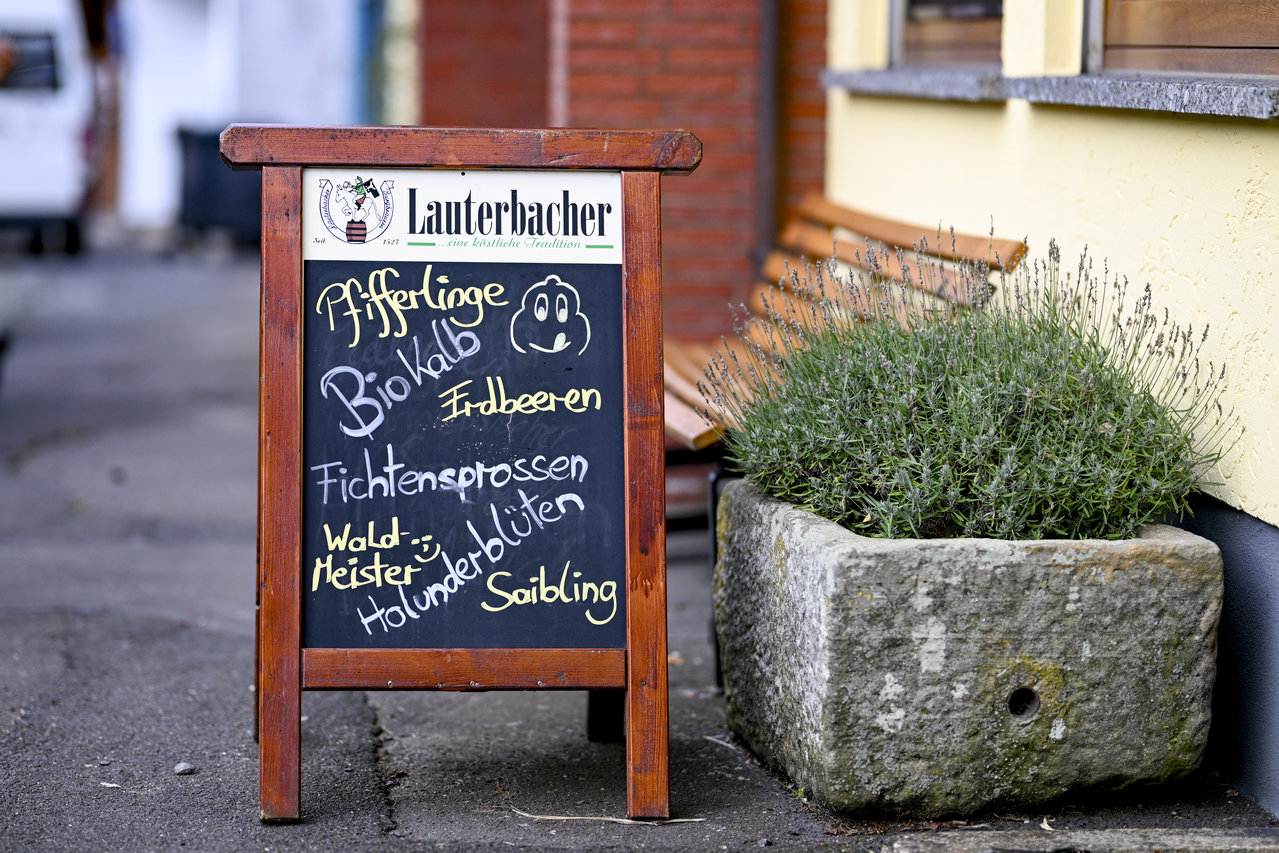 Lauterbacher
Seit 1527
...eine köstliche Tradition
Pfifferlinge
Bio Kalb
Erdbeeren
Fichtensprossen
Wald-
Meister
Holunderblüten
Saibling